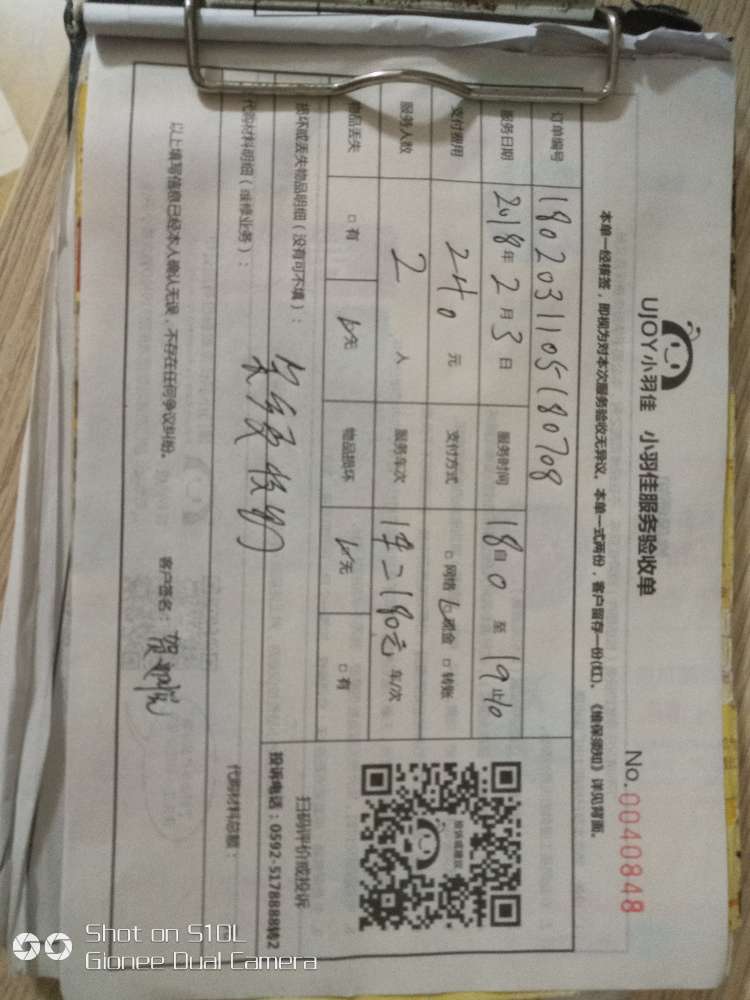 UJOY小羽佳 小羽佳服务验收单
No.0040848
本单一经核签，即视为对本次服务验收无异议。本单一式两份，客户留存一份(红)。《维保须知》详见背面。
订单编号 1802031105180708
服务日期 2018年2月3日 服务时间 18自0 至 19止10
支付费用 240元 支付方式 □网络 □现金 □转账
服务人数 2人 服务车次 车/次
物品丢失 □有 □无 物品损坏 □无 □有
损坏或丢失物品明细（没有可不填）：
代购材料明细（维修业务）：
代购材料总额：
以上填写信息已经本人确认无误，不存在任何争议纠纷。 客户签名：
投诉或建议
扫码评价或投诉
投诉电话：0592-5178888转2
Shot on S10L
Gionee Dual Camera